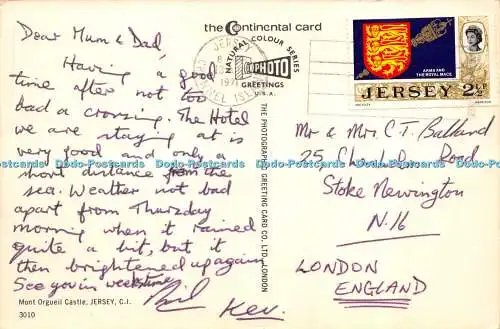 the Continental card
Dear Mum & Dad,
Having a good
time after not too
bad a crossing. The Hotel
we are staying at is
very good and only a
short distance from the
sea. Weather not bad
apart from Thurzday
morning when it rained
quite a bit, but it
then brightened up again
See you in weekstime
Kev.
Mont Orgueil Castle, JERSEY, C.I.
3010
NATURAL COLOUR SERIES
PHOTO
GREETINGS
U.S.A.
JERSEY
CHANNEL ISLANDS
1971
THE PHOTOGRAPHIC GREETING CARD CO. LTD., LONDON
ARMS AND
THE ROYAL MACE
JERSEY 2½
Mr & Mrs C.T. Balland
25 Road
Stoke Newington
N.16
LONDON
ENGLAND
Dodo-Postcards Dodo-Postcards Dodo-Postcards Dodo-Postcards Dodo-Postcards